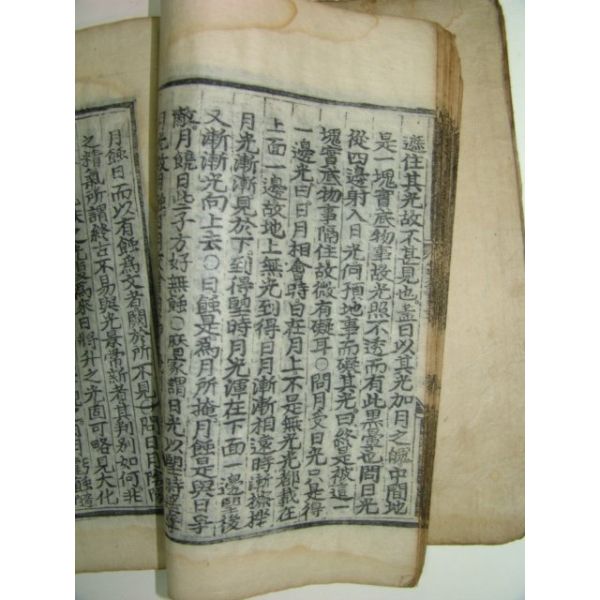 遮住其光故不甚見也蓋日以其光加月之魄中間地
是一塊實底物事故光照不透而有此黑暈也問日光
從四邊射入日光何預地事而礙其光曰終是被這一
塊實底物事隔住故微有礙耳○問月受日光只是得
一邊光曰日月相會時日在月上不是無光光都載在
上面一邊故地上無光到得日月漸漸相遠時漸擦挫
月光漸漸見於下到得望時月光渾在下面一邊望後
又漸漸光向上去○日蝕是為月所掩月蝕是與日爭
敵月饒日些子方好無蝕○曆家謂日光以望時
月光故月蝕
月蝕日而以有蝕為文者關於所不見○問日月陰陽
之精氣所謂終古不易與光景常新者其判別如何非
為來日將升之光固可略見大化